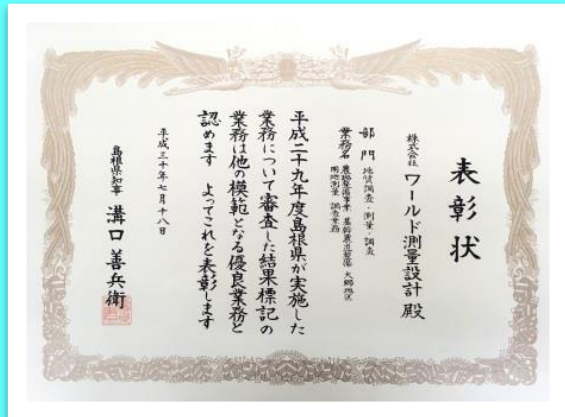 表彰状
株式会社 ワールド測量設計 殿
部門 地質調査・測量・調査
業務名 農地整備事業 基幹農道整備 大郷地区
用地測量 調査業務
平成二十九年度島根県が実施した
業務について審査した結果標記の
業務は他の模範となる優良業務と
認めます よってこれを表彰します
平成三十年七月十八日
島根県知事 溝口善兵衛